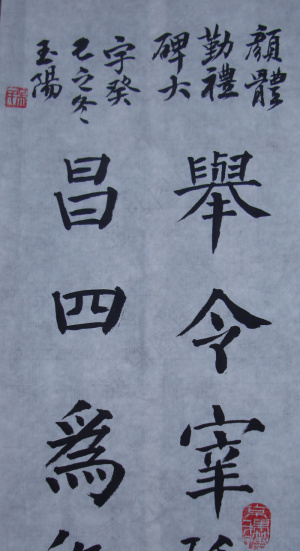 顏體
勤禮
碑大
字癸
巳之冬
玉陽
舉令宰
昌四爲